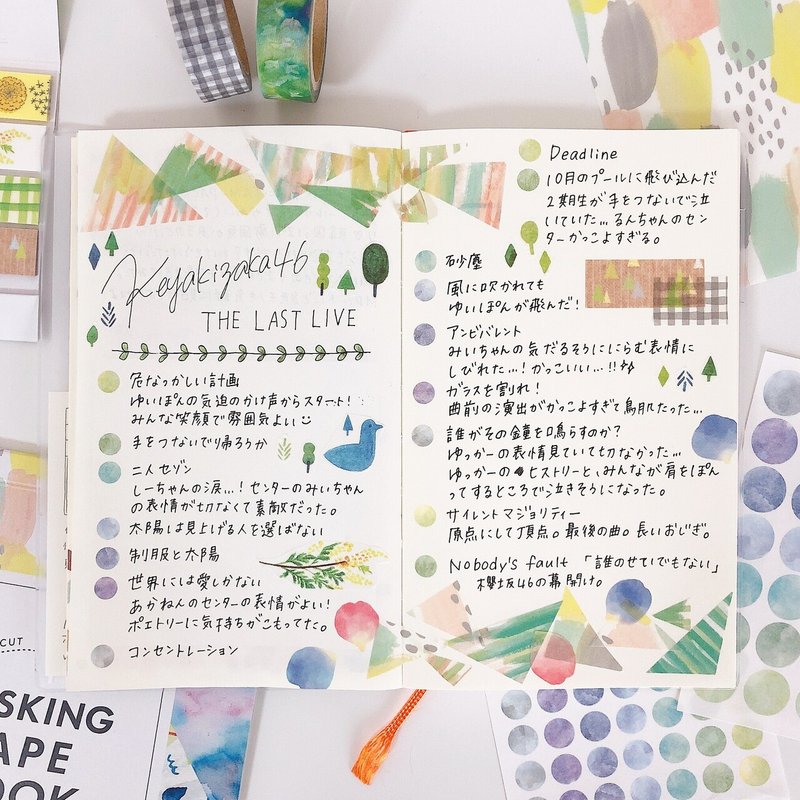 Keyakizaka46
THE LAST LIVE
危なっかしい計画
ゆいぽんの気迫のかけ声からスタート!
みんな笑顔で雰囲気よい
手をつないで帰ろうか
二人セゾン
しーちゃんの涙…!センターのみいちゃん
の表情が切なくて素敵だった。
太陽は見上げる人を選ばない
制服と太陽
世界には愛しかない
あかねんのセンターの表情がよい!
ポエトリーに気持ちがこもってた。
コンセントレーション
Deadline
10月のプールに飛び込んだ
2期生が手をつないで泣
いていた…るんちゃんのセン
ターかっこよすぎる。
砂塵
風に吹かれても
ゆいぽんが飛んだ!
アンビバレント
みいちゃんの気だるそうににらむ表情に
しびれた…!かっこいい…!!
ガラスを割れ!
曲前の演出がかっこよすぎて鳥肌たった…
誰がその鐘を鳴らすのか?
ゆっかーの表情見ていて切なかった…
ゆっかーのヒストリーと、みんなが肩をぽん
ってするところで泣きそうになった。
サイレントマジョリティー
原点にして頂点。最後の曲。長いおじぎ。
Nobody's fault 「誰のせいでもない」
櫻坂46の幕開け。
CUT
SKING
APE
OOK